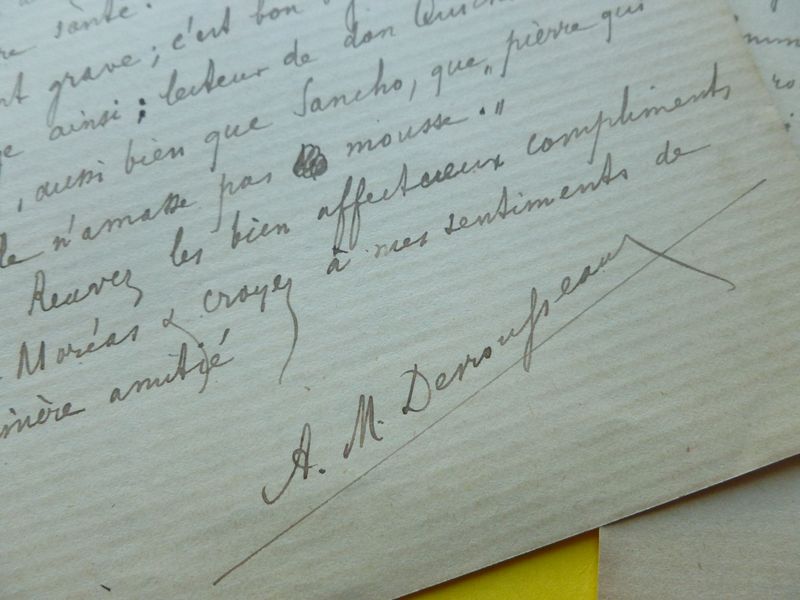 re santé.
nt grave ; c'est bon
e ainsi ; lecteur de don Quich
, aussi bien que Sancho, que „ pierre qui
le n'amasse pas mousse. "
Recevez les bien affectueux compliments
Moréas & croyez à mes sentiments de
incère amitié
A. M. Desrousseaux